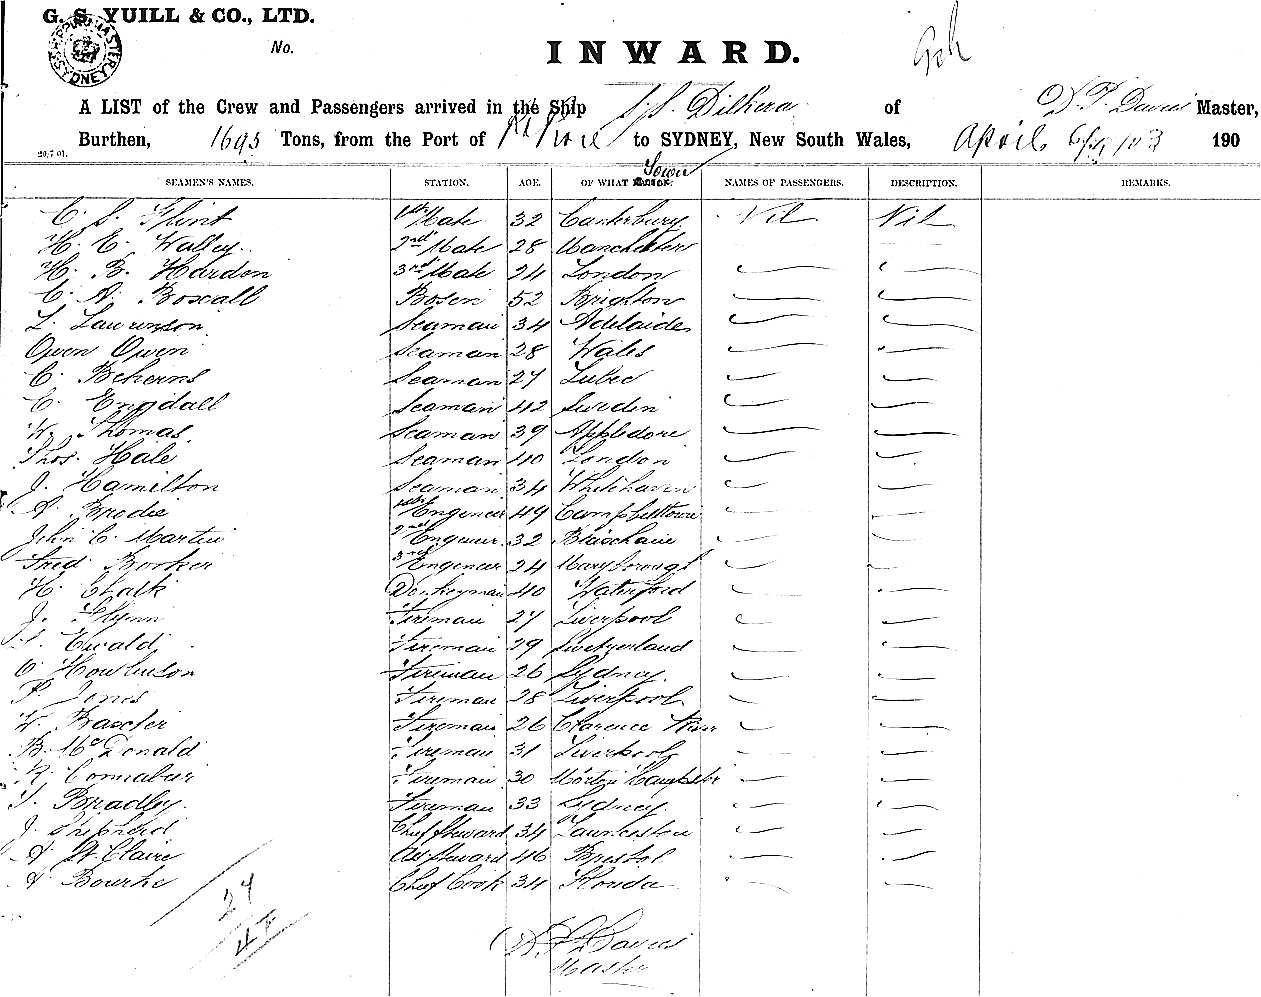 G. S. YUILL & CO., LTD.
SHIPPING MASTER SYDNEY
No.
INWARD.
A LIST of the Crew and Passengers arrived in the Ship S.S. Dilkera of D F Davies Master,
Burthen, 1693 Tons, from the Port of Pt Pirie to SYDNEY, New South Wales, April 6/4/03 190
20.7.01.
SEAMEN'S NAMES. STATION. AGE. OF WHAT Town NAMES OF PASSENGERS. DESCRIPTION. REMARKS.
C. S. Flint 1st Mate 32 Canterbury Nil Nil
H. E. Walley 2nd Mate 28 Manchester
H. B. Hardon 3rd Mate 24 London
C. A. Boxall Bosen 52 Brighton
L. Laurenson Seaman 34 Adelaide
Owen Owen Seaman 28 Wales
C. Beherns Seaman 27 Lubec
C. Engdall Seaman 42 Sweden
W. Thomas Seaman 39 Appledore
Thos. Hale Seaman 40 London
J. Hamilton Seaman 34 Whitehaven
A. Brodie 1st Engeneer 49 Campbelltown
John C. Martin 2nd Engeneer 32 Brisbane
Fred Booker 3rd Engeneer 24 Maryborough
H. Chalk Donkeyman 40 Waterford
J. Flynn Fireman 27 Liverpool
Ewald Fireman 29 Switzerland
Fireman 26 Sydney.
P. Jones Fireman 28 Liverpool
W. Fireman 26 Clarence River
B. McDonald Fireman 31 Liverpool
R. Fireman 30
T. Bradley. Fireman 33 Sydney.
J. Shepherd Chief Steward 34 Launceston
A St. Claire Ast Steward 46 Bristol
Bourke Chef Cook 34
27
D F Davies
Master